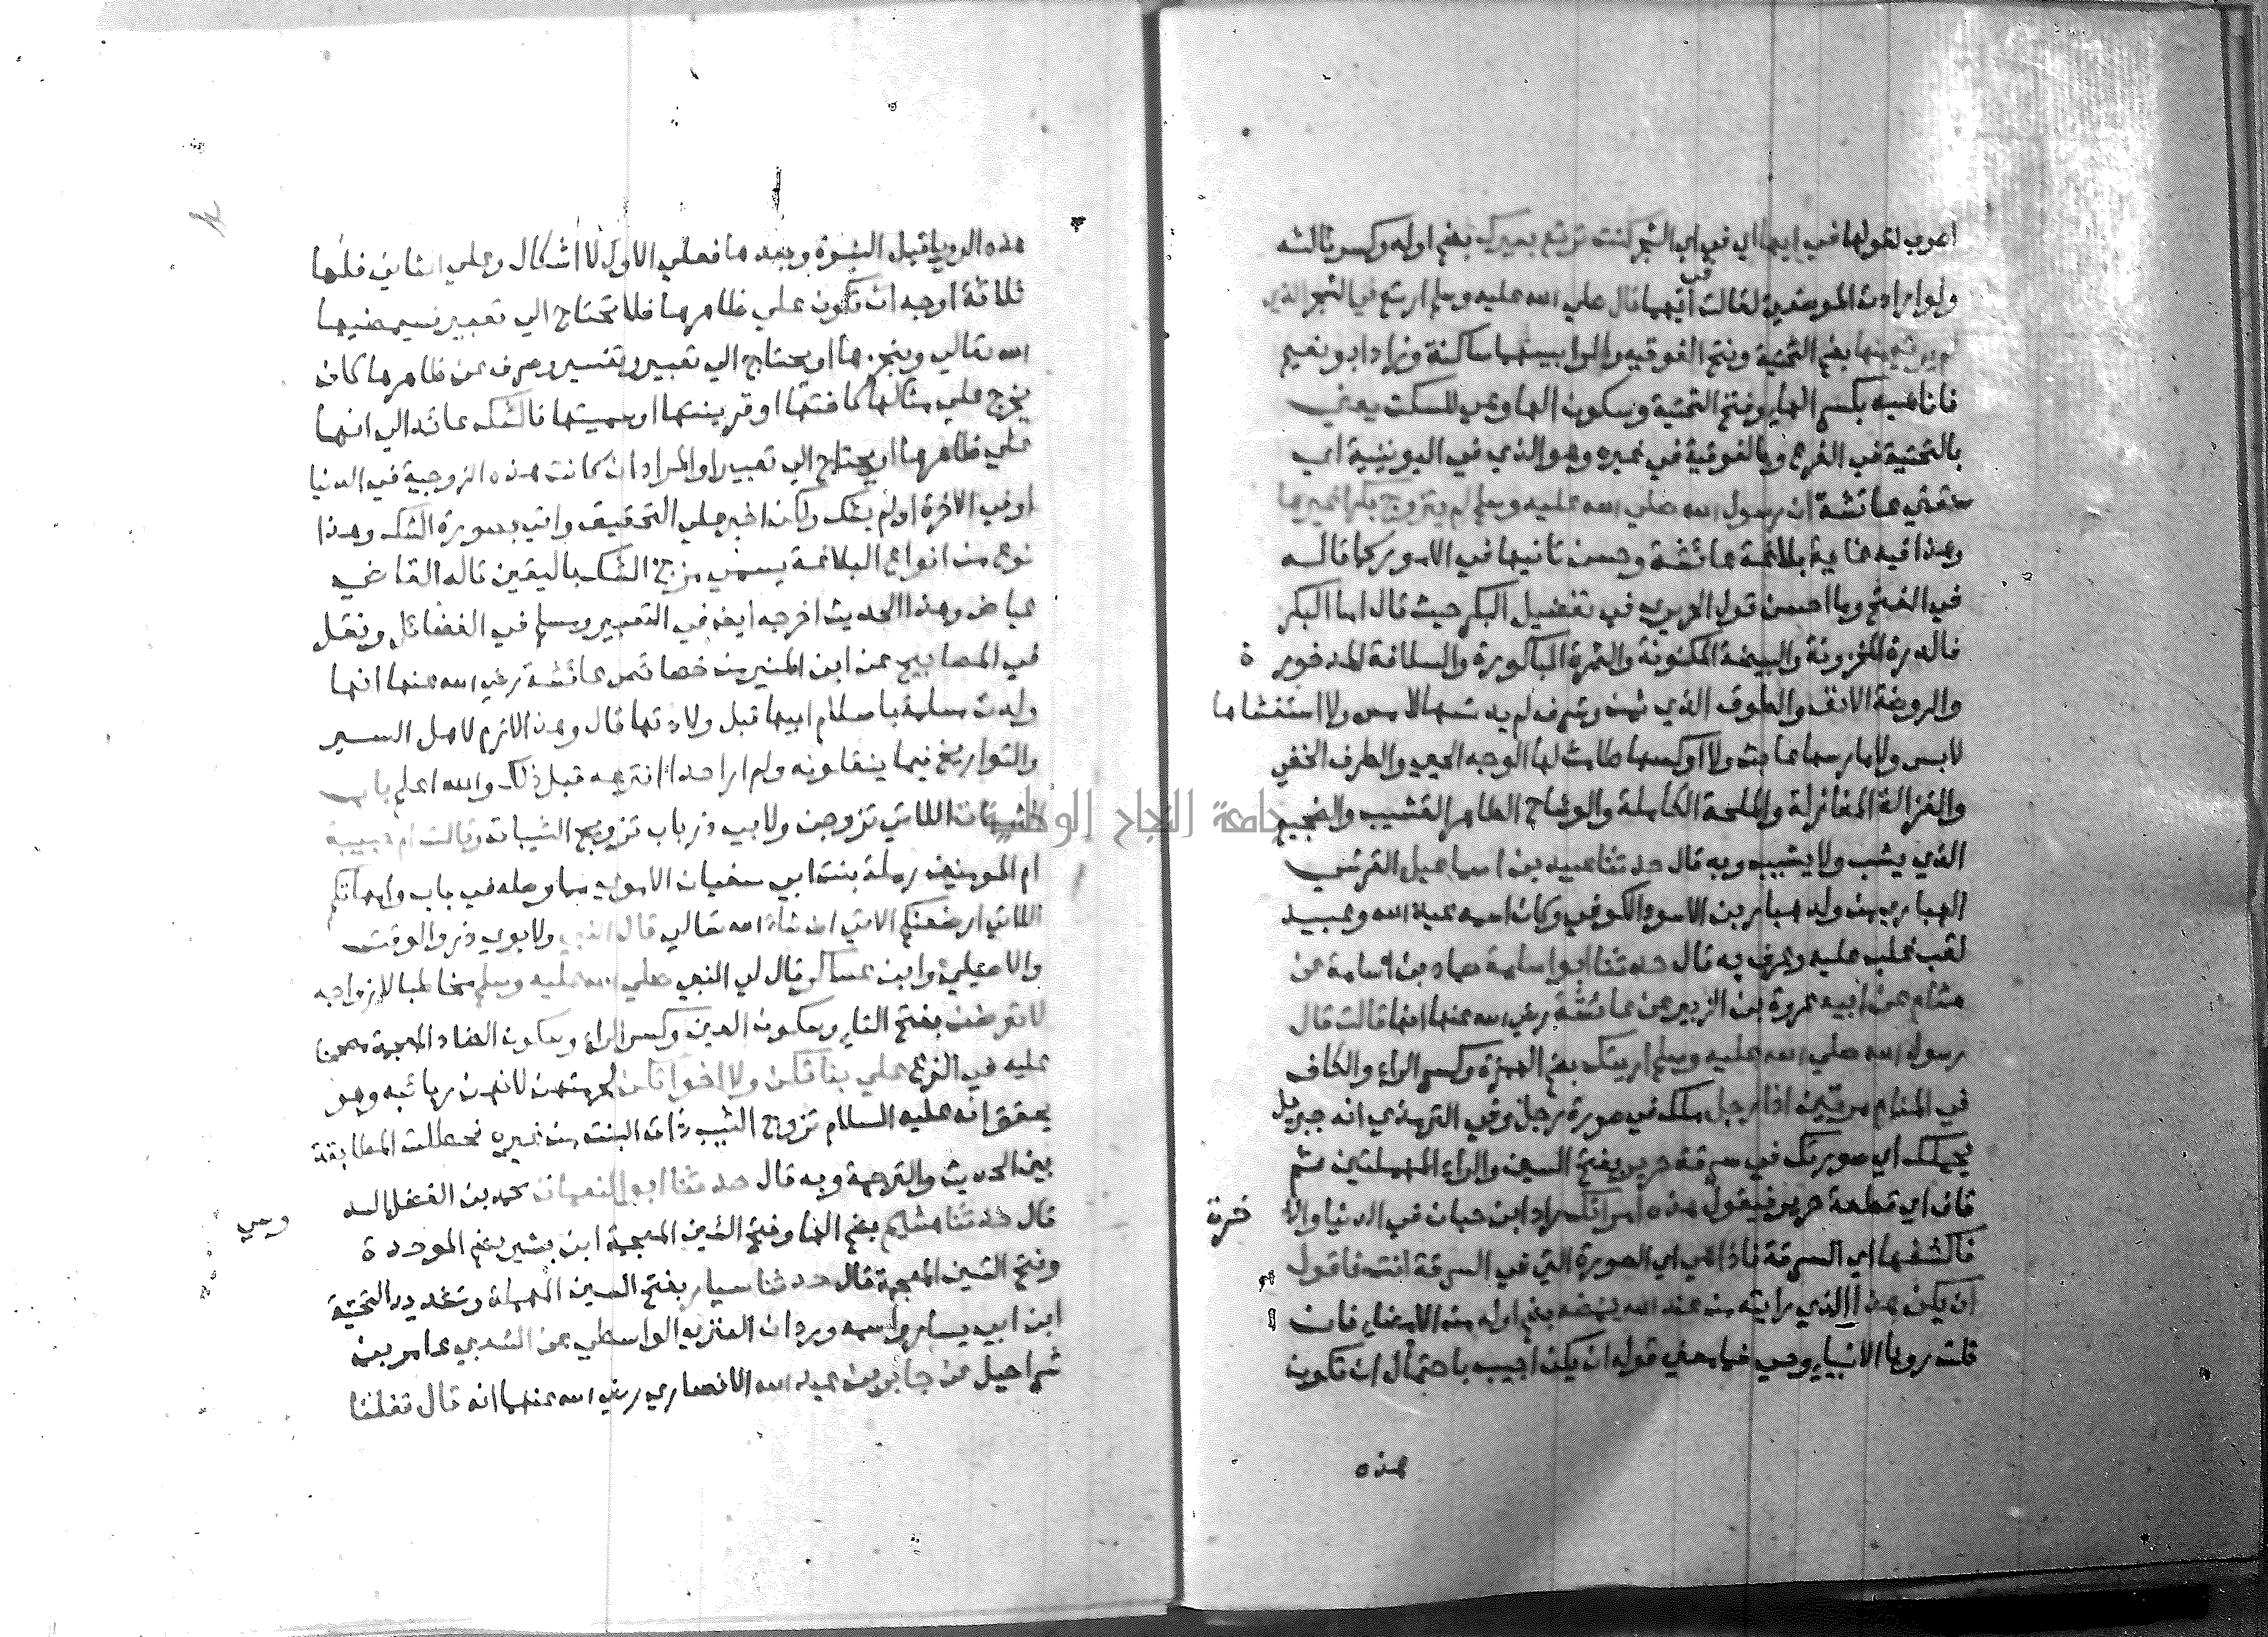 اصوب لقولها في ايها اي في اي الشجر كنت ترتع بعيرك بضم اوله وكسر ثالثه
ولو ارادت الموضعين لقالت في ايهما قال صلي الله عليه وسلم ارتع في الشجر الذي
لم يرتع منها بضم التحتية وفتح الفوقيه والرا بينهما ساكنة وزاد ابو نعيم
فانا هيه بكسر الهاء وفتح التحتية وسكون الها وهي للسكت يعني
بالتحتية في الفرع وبالفوقية في غيره وهو الذي في اليونينية اي
تعني عائشة ان رسول الله صلي الله عليه وسلم لم يتزوج بكرا غيرها
وهذا فيه غاية بلاغة عائشة وحسن تانيها في الامور كما قاله
في الفتح وما احسن قول الحريري في تفضيل البكر حيث قال اما البكر
فالدرة المخزونة والبيضة المكنونة والثمرة الباكورة والسلافة المدخورة
والروضة الانف والطوق الذي ثمن وشرف لم يدنسها لامس ولا استغشاها
لابس ولا مارسها عابث ولا اوكسها طامث لها الوجه الحيي والطرف الخفي
والغزالة المغازلة والملحة الكاملة والوشاح الطاهر القشيب والضجيع
الذي يشب ولا يشيب وبه قال حدثنا عبيد بن اسماعيل القرشي
الهباري من ولد هبار بن الاسود الكوفي وكان اسمه عبد الله وعبيد
لقب غلب عليه وعرف به قال حدثنا ابو اسامة حماد بن اسامة عن
هشام عن ابيه عروة بن الزبير عن عائشة رضي الله عنها انها قالت قال
رسول الله صلي الله عليه وسلم اريتك بضم الهمزة وكسر الراء والكاف
في المنام مرتين اذا رجل ملك في صورة رجل وفي الترمذي انه جبريل
يحملك اي صورتك في سرقة حرير بفتح السين والراء المهملتين ثم
قاف اي قطعة حرير فيقول هذه امراتك زاد ابن حبان في الدنيا والاخرة
فاكشفها اي السرقة فاذا هي اي الصورة التي في السرقة انت فاقول
ان يكن هذا الذي رايته من عند الله يمضه بضم اوله من الامضاء فان
قلت رويا الانبياء وحي فما معني قوله ان يكن اجيب باحتمال ان تكون
هذه
هذه الرويا قبل النبوة وبعدها فعلي الاول لا اشكال وعلي الثاني فلها
ثلاثة اوجه ان تكون علي ظاهرها فلا تحتاج الي تعبير فسيمضيها
الله تعالي وينجزها او يحتاج الي تعبير وتفسير وصرف عن ظاهرها كان
يخرج علي مثالها كاختها او قرينتها او سميتها فالشك عائد الي انها
علي ظاهرها او يحتاج الي تعبير او المراد ان كانت هذه الزوجية في الدنيا
او في الاخرة او لم يشك ولكن اخبر علي التحقيق واتي بصورة الشك وهذا
نوع من انواع البلاغة يسمي مزج الشك باليقين قاله القاضي
عياض وهذا الحديث اخرجه ايضا في التعبير ومسلم في الفضائل ونقل
في المصابيح عن ابن المنير من خصائص عائشة رضي الله عنها انها
ولدت مسلمة باسلام ابيها قبل ولادتها قال وهذا لازم لاهل السير
والتواريخ فيما ينقلونه ولم ار احدا انتزعه قبل ذلك والله اعلم باب
الثيبات اللاتي تزوجن ولابي ذر باب تزويج الثيبات وقالت ام حبيبة
ام المومنين رملة بنت ابي سفيان الاموي مما وصله في باب وامهاتكم
اللاتي ارضعنكم الاتي ان شاء الله تعالي قال النبي ولابوي ذر والوقت
والاصيلي وابن عساكر قال لي النبي صلي الله عليه وسلم مخاطبا لازواجه
لا تعرضن بفتح التاء وسكون العين وكسر الراء وسكون الضاد المعجمة مصححا
عليه في الفرع علي بناتكن ولا اخواتكن لحرمتهن لانهن ربائبه وهو
يحقق انه عليه السلام تزوج الثيب ذات البنت من غيره فحصلت المطابقة
بين الحديث والترجمة وبه قال حدثنا ابو النعمان محمد بن الفضل السدوسي
قال حدثنا هشيم بضم الها وفتح الشين المعجمة ابن بشير بضم الموحدة
وفتح الشين المعجمة قال حدثنا سيار بفتح السين المهملة وتشديد التحتية
ابن ابي يسار واسمه وردان العنزي الواسطي عن الشعبي عامر بن
شراحيل عن جابر بن عبد الله الانصاري رضي الله عنهما انه قال قفلنا
جامعة النجاح الوطنية